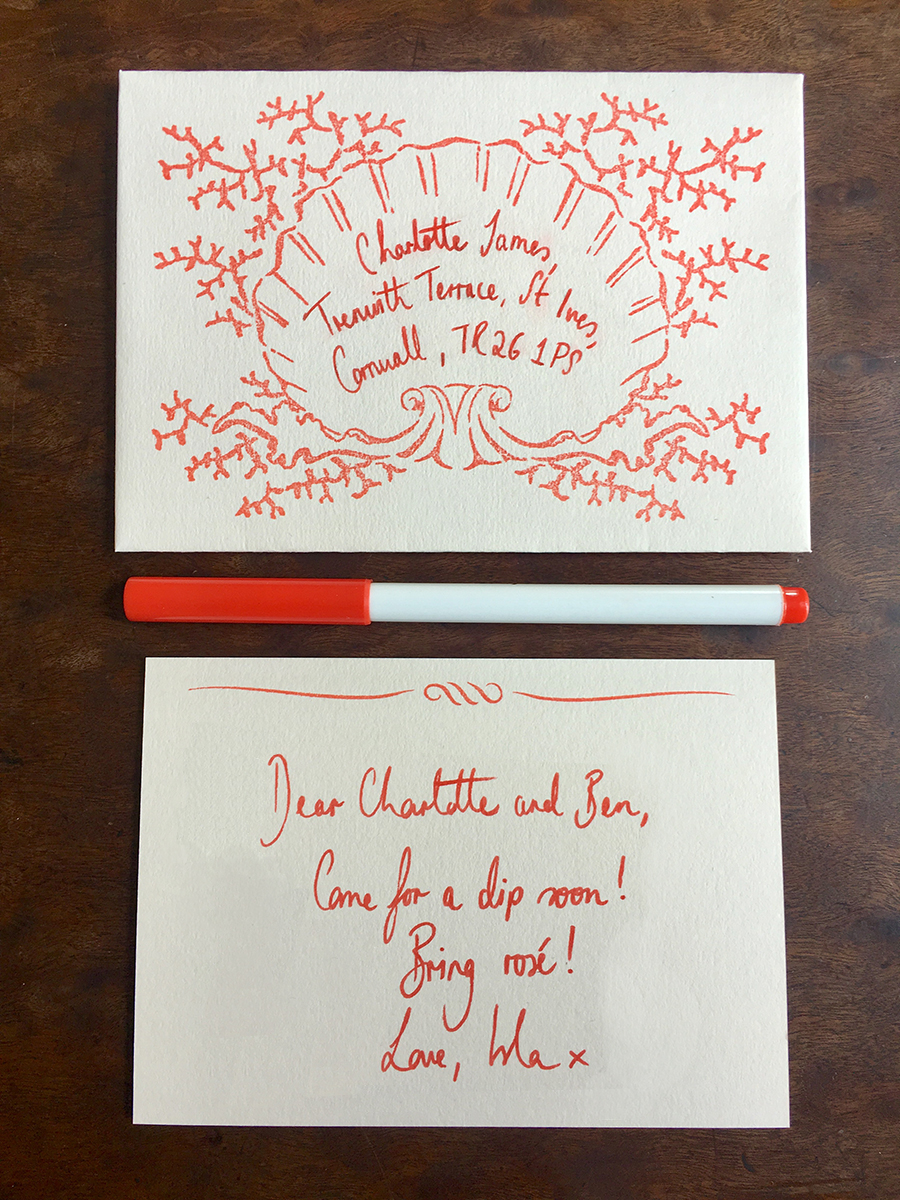 Charlotte James,
Trenwith Terrace, St Ives,
Cornwall, TR26 1PS
Dear Charlotte and Ben,
Come for a dip soon!
Bring rosé!
Love, x